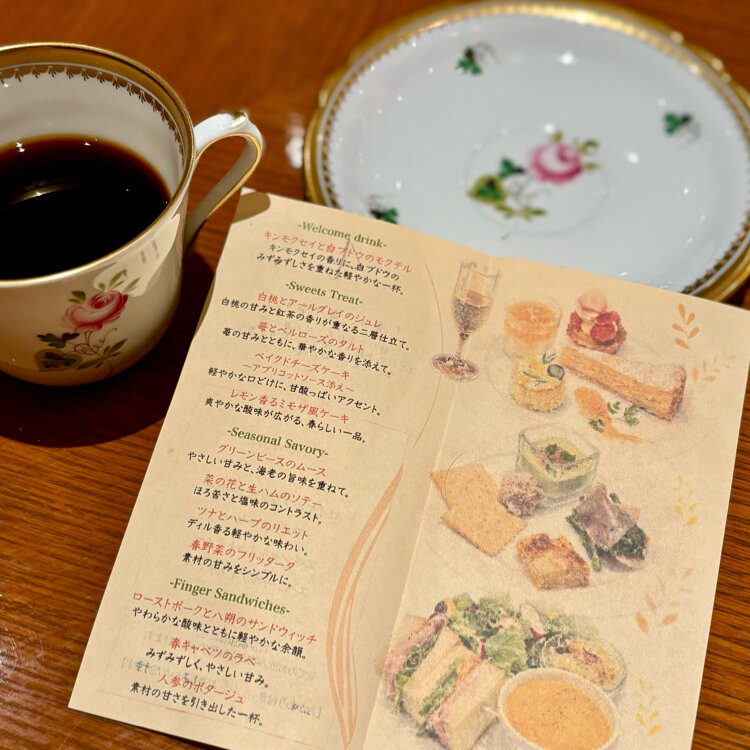 -Welcome drink-
キンモクセイと白ブドウのモクテル
キンモクセイの香りに、白ブドウの
みずみずしさを重ねた軽やかな一杯。
-Sweets Treat-
白桃とアールグレイのジュレ
白桃の甘みと紅茶の香りが重なる二層仕立て。
苺とベルローズのタルト
苺の甘みとともに、華やかな香りを添えて。
ベイクドチーズケーキ
～アプリコットソース添え～
軽やかな口どけに、甘酸っぱいアクセント。
レモン香るミモザ風ケーキ
爽やかな酸味が広がる、春らしい一品。
-Seasonal Savory-
グリーンピースのムース
やさしい甘みと、海老の旨味を重ねて。
菜の花と生ハムのソテー
ほろ苦さと塩味のコントラスト。
ツナとハーブのリエット
ディル香る軽やかな味わい。
春野菜のフリッタータ
素材の甘みをシンプルに。
-Finger Sandwiches-
ローストポークと八朔のサンドウィッチ
やわらかな酸味とともに軽やかな余韻。
春キャベツのラペ
みずみずしく、やさしい甘み。
人参のポタージュ
素材の甘さを引き出した一杯。